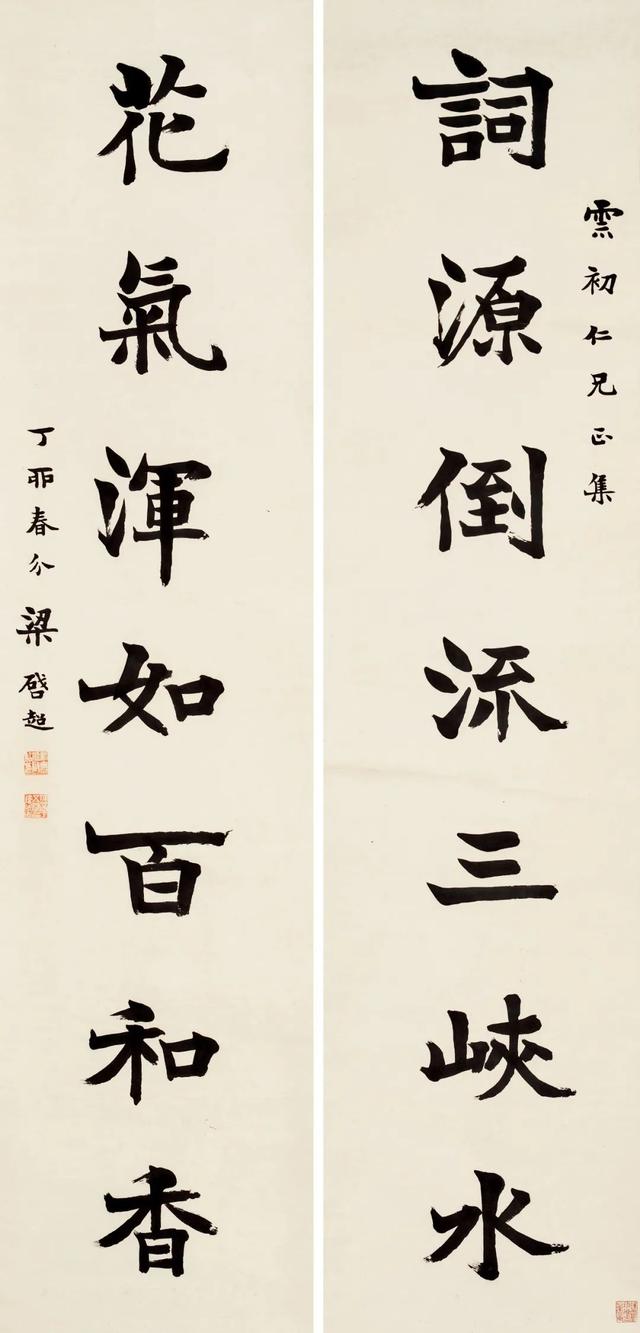 雲初仁兄正集
詞源倒流三峽水
花氣渾如百和香
丁卯春分
梁啓超